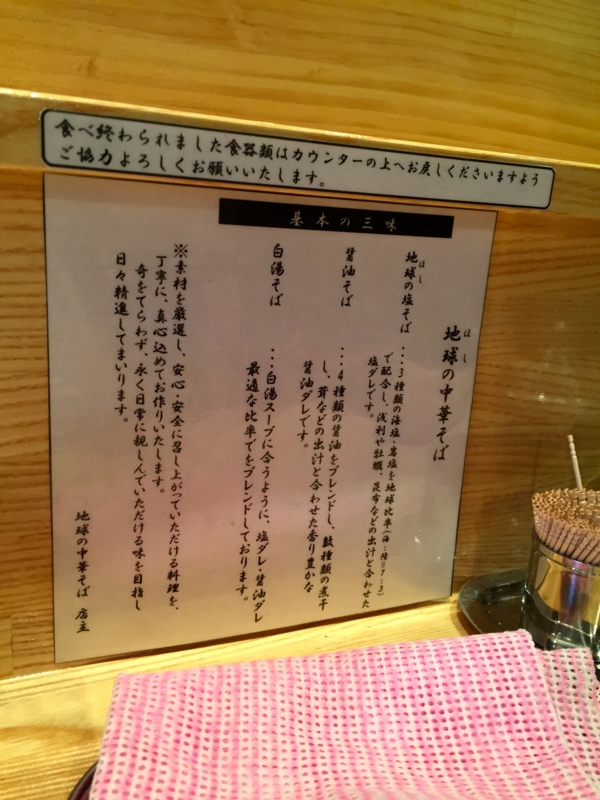 食べ終わられました食器類はカウンターの上へお戻しくださいますよう
ご協力よろしくお願いいたします。
基本の三味
地球の中華そば
はし
地球の塩そば
はし
・・・3種類の海塩・岩塩を地球比率(海:陸=7:3)
で配合し、浅利や牡蠣、昆布などの出汁と合わせた
塩ダレです。
醤油そば
・・・4種類の醤油をブレンドし、数種類の煮干
し、茸などの出汁と合わせた香り豊かな
醤油ダレです。
白湯そば
・・・白湯スープに合うように、塩ダレ・醤油ダレ
最適な比率でをブレンドしております。
※素材を厳選し、安心・安全に召し上がっていただける料理を、
丁寧に、真心込めてお作りいたします。
奇をてらわず、永く日常に親しんでいただける味を目指し
日々精進してまいります。
地球の中華そば 店主